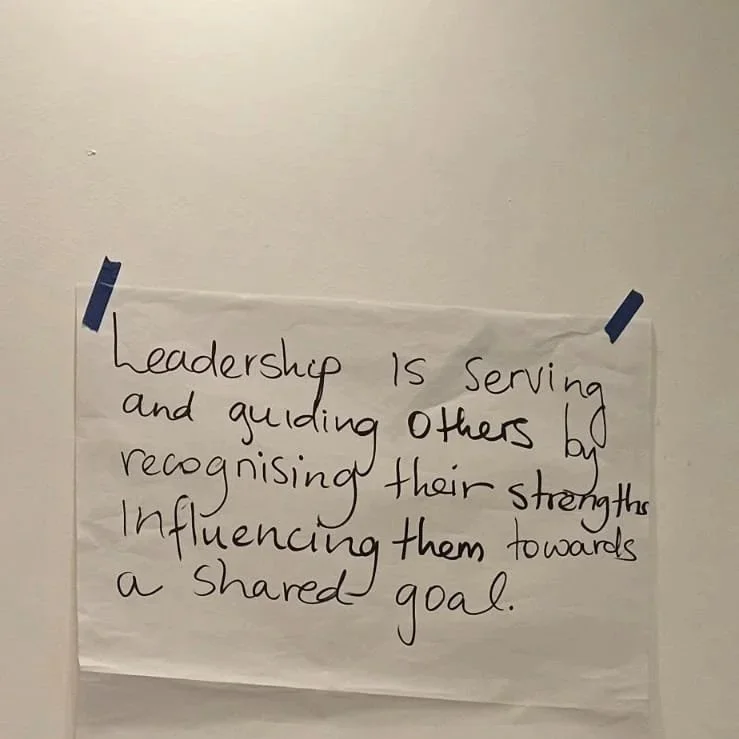 Leadership is serving
and guiding others by
recognising their strengths
Influencing them towards
a shared goal.